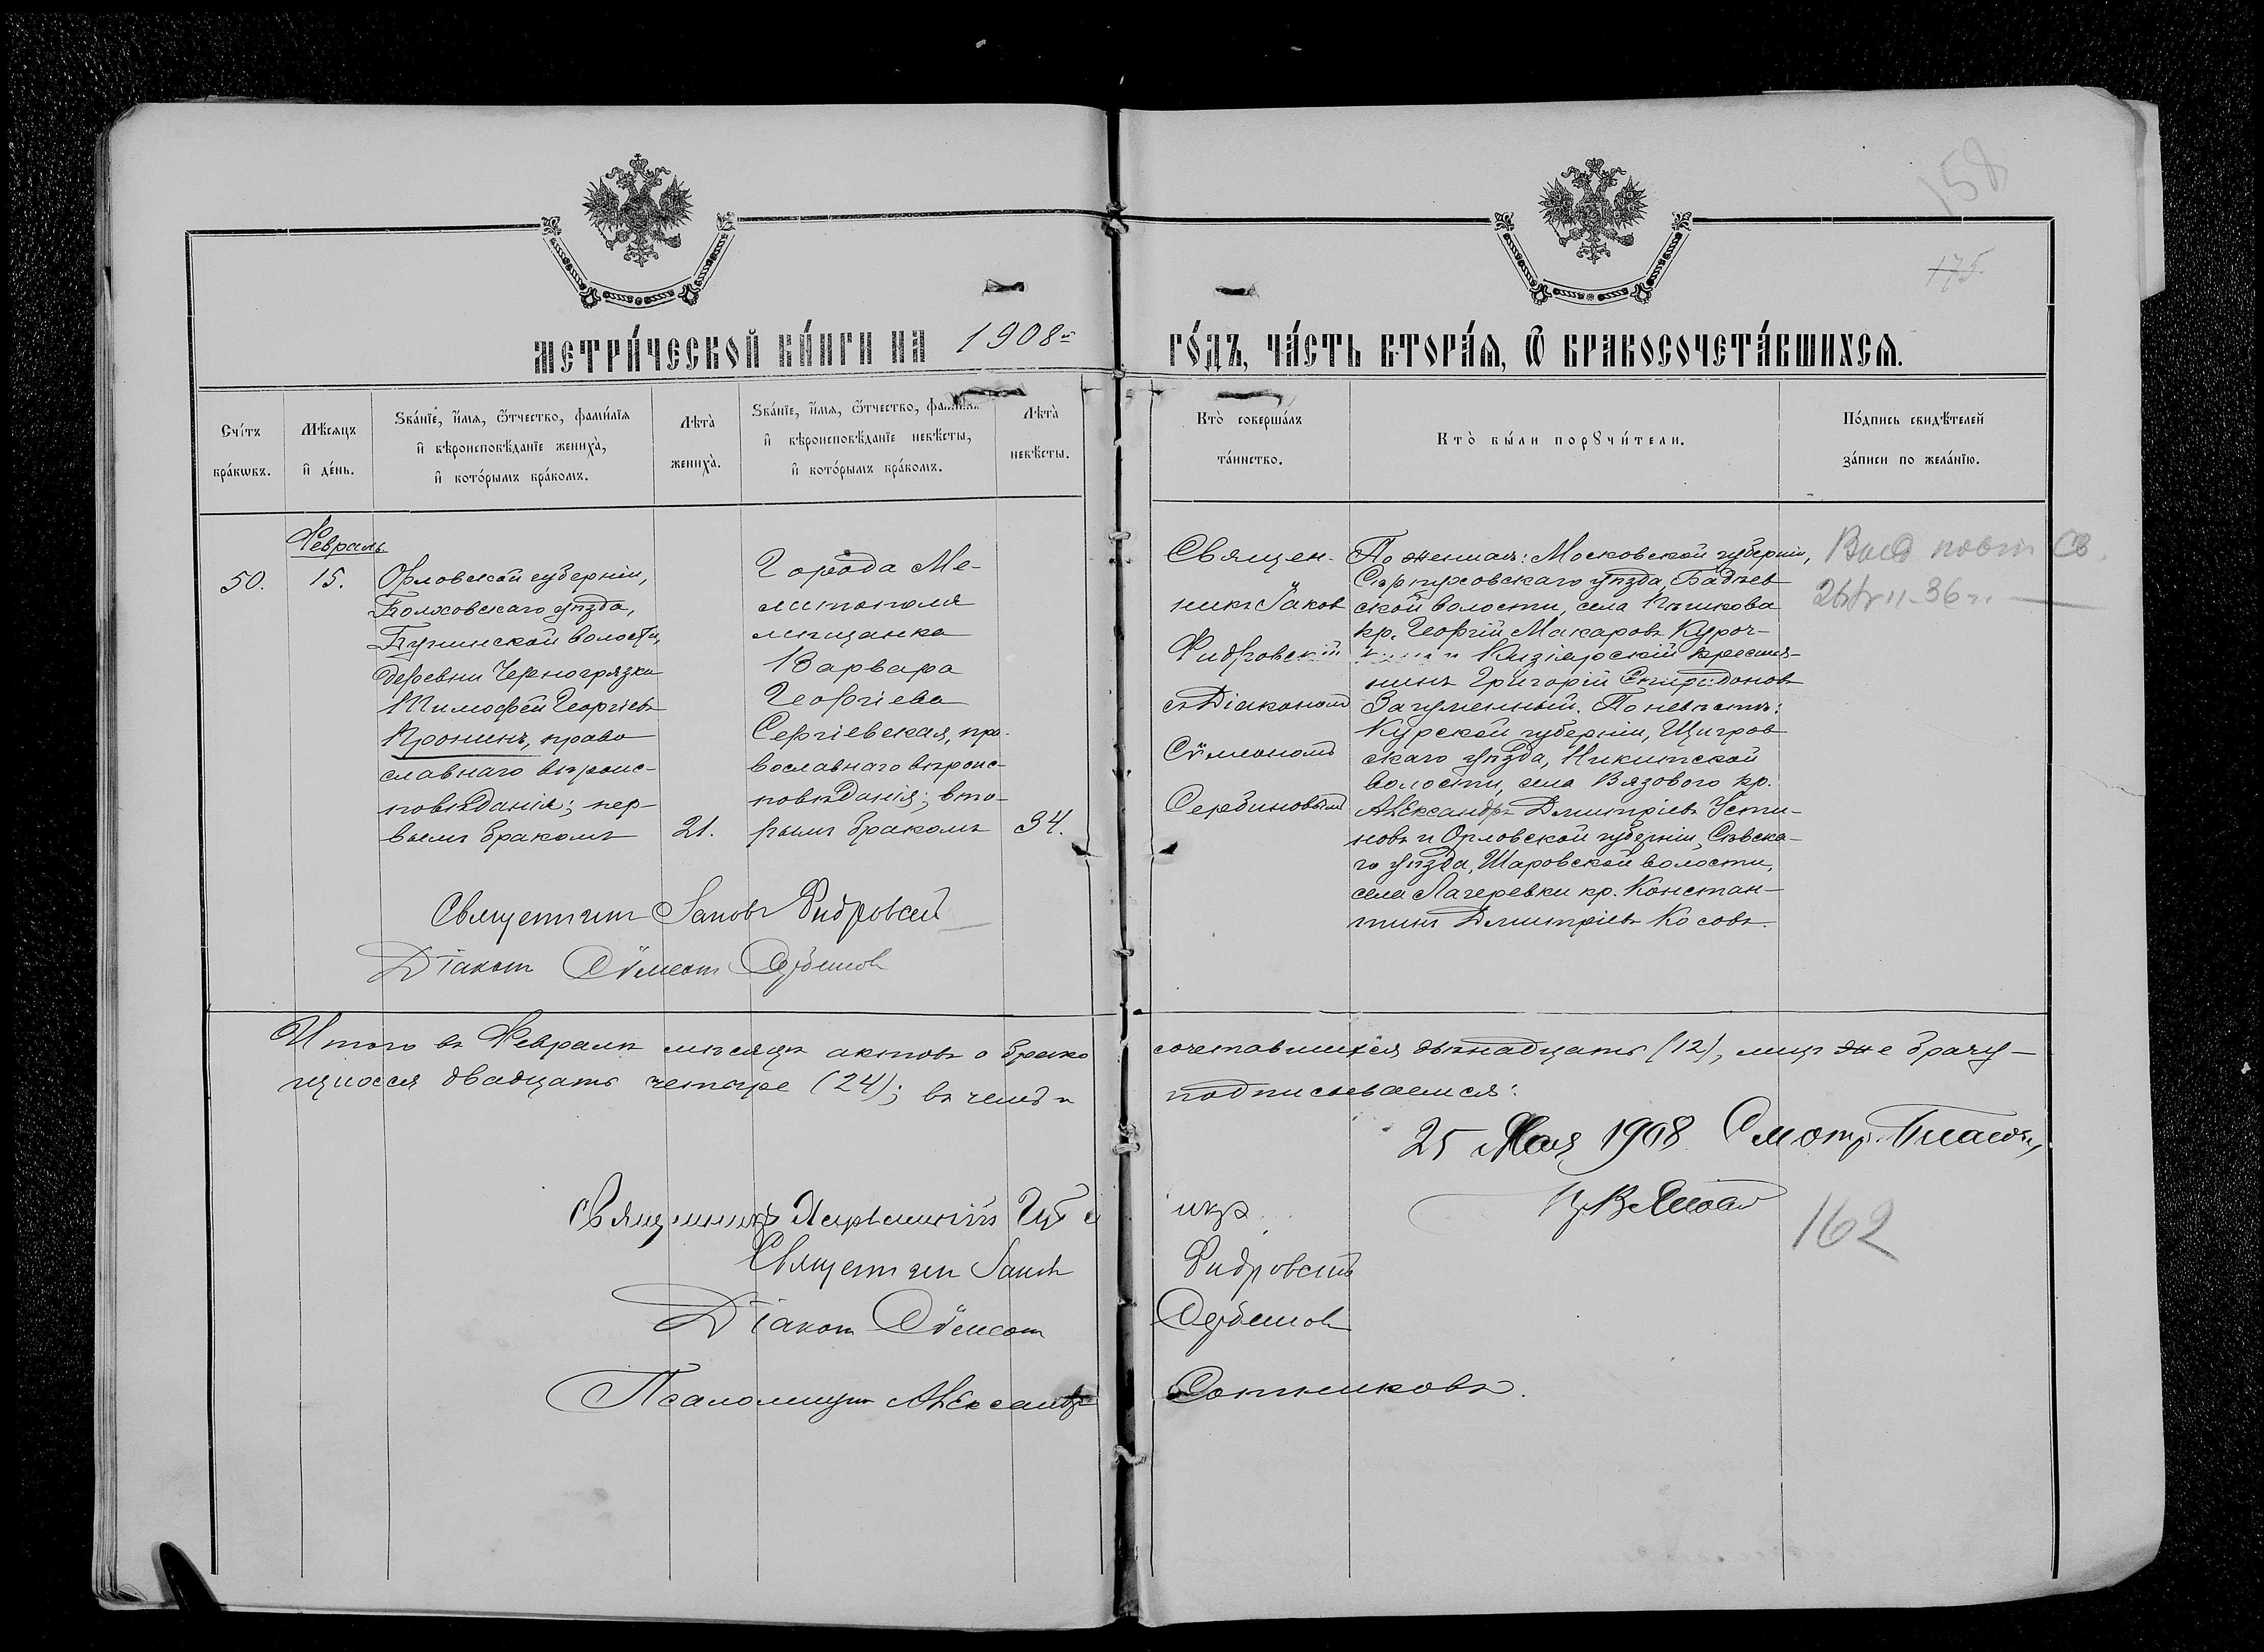 158
175.
МЕТРИ́ЧЕСКОЙ КНИ́ГИ НА 1908й ГО́ДЪ, ЧА́СТЬ ВТОРА́Я, Ѽ БРАКОСОЧЕТА́ВШИХСЯ.
Сче́тъ бра́кωвъ.
Мѣ́сяцъ и҆ де́нь.
Зва́нїе, и҆́мя, ѻ҆́тчество, фами́лїя и҆ вѣроисповѣ́данїе жениха̀, и҆ кото́рымъ бра́комъ.
Лѣта̀ жениха̀.
Зва́нїе, и҆́мя, ѻ҆́тчество, фами́лїя и҆ вѣроисповѣ́данїе невѣ́сты, и҆ кото́рымъ бра́комъ.
Лѣта̀ невѣ́сты.
Кто̀ соверша́лъ та́инство.
Кто̀ бы́ли порꙋчи́тели.
По́дпись свидѣ́телей за́писи по жела́нїю.
50.
Февраль
15.
Орловской губерніи,
Болховскаго уѣзда,
волости,
деревни Черногрязки
Тимофей Георгіевъ
Пронинъ, право
славнаго вѣроис-
повѣданія; пер-
вымъ бракомъ
21.
Города Ме-
литополя
мѣщанка
Варвара
Георгіева
Сергіевская, пра-
вославнаго вѣроис-
повѣданія; вто-
рымъ бракомъ
34.
Священ-
никъ Іаковъ
Фидровскій
съ Діакономъ
Сѵмеономъ
Сербиновымъ
По женихѣ: Московской губерніи,
Серпуховскаго уѣзда, Бадѣев
ской волости, села
кр. Георгій Макаровъ Куроч-
и крестья-
нинъ Григорій Спиридоновъ
Загуменный. По невѣстѣ:
Курской губерніи, Щигров
скаго уѣзда, Никитской
волости, села Вязового кр.
Александръ Димитріевъ Усти-
новъ и Орловской губерніи, Сѣвска-
го уѣзда, Шаровской волости,
села Лагеревки кр. Констан-
тинъ Димитріевъ Косовъ.
36 г.
Священникъ Іаковъ Фидровскій
Діаконъ Сѵмеонъ Сербиновъ
Итого въ Февралѣ мѣсяцѣ актовъ о брако сочетавшихся двѣнадцать (12), лицъ же брачу-
щихся двадцать четыре (24); въ чемъ и подписываемся:
25 Мая 1908 Смотр.
162
Священникъ
Священникъ Іаковъ Фидровскій
Діаконъ Сѵмеонъ Сербиновъ
Псаломщикъ Александръ Сотниковъ.